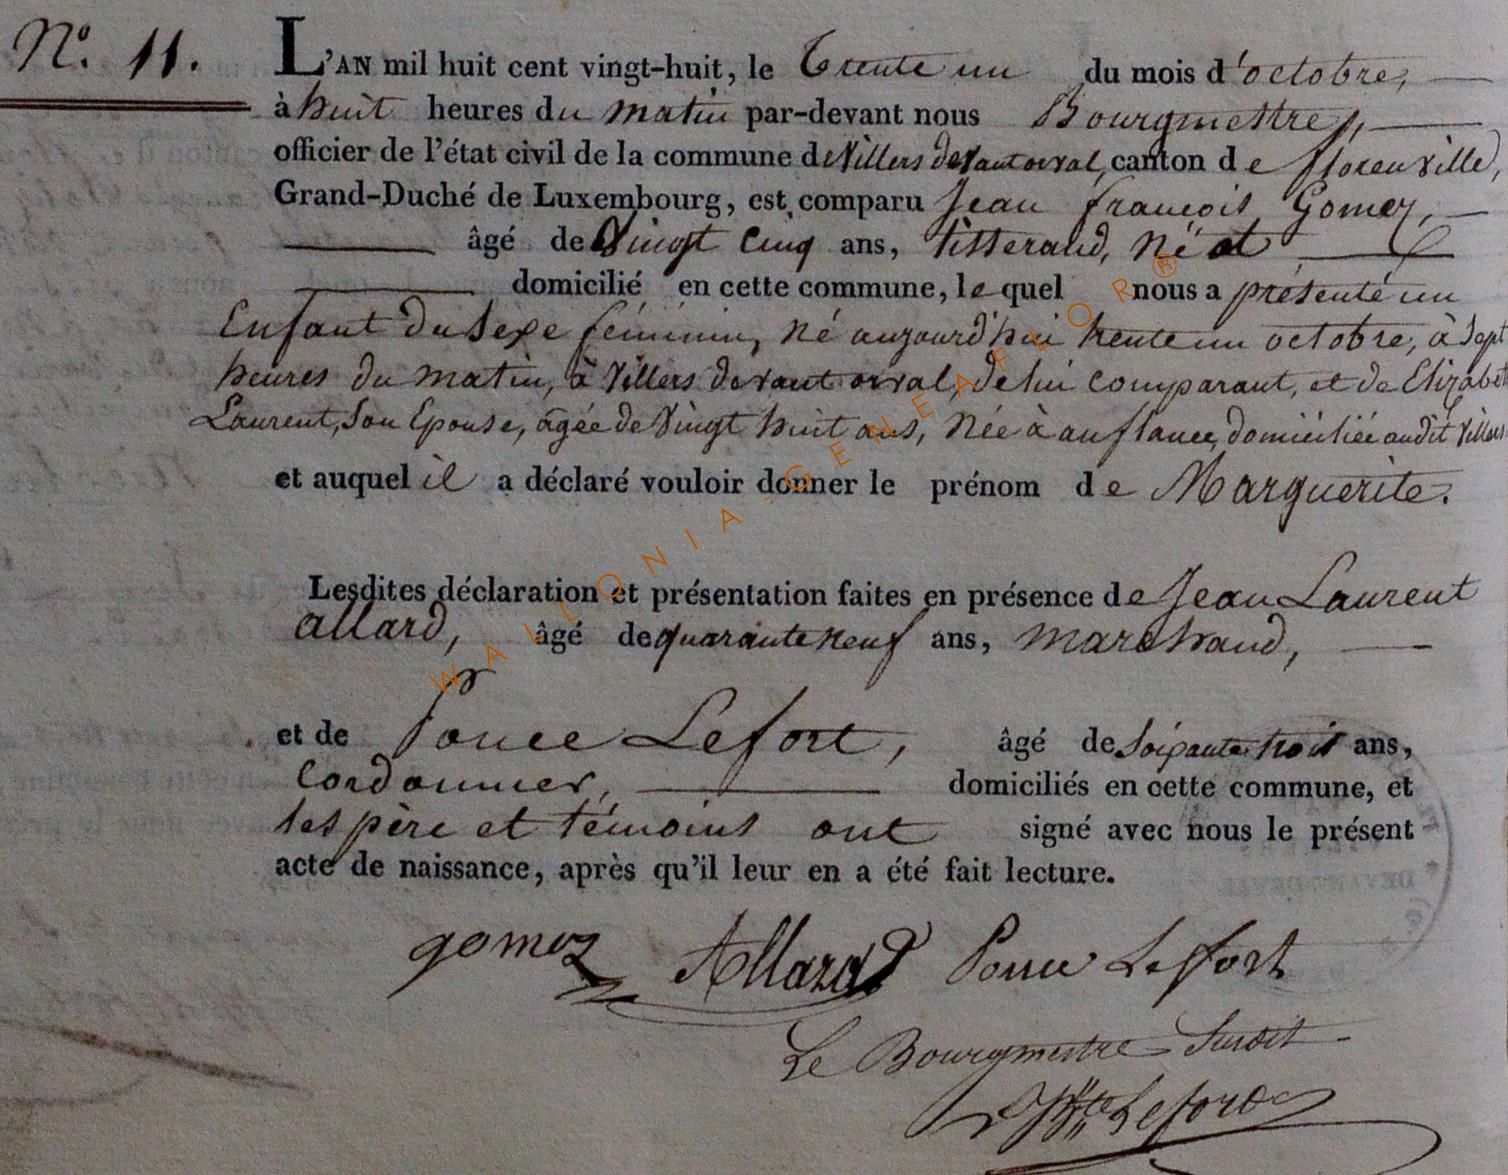 N.° 11.
L'AN mil huit cent vingt-huit, le Trente un du mois d'octobre,
à huit heures du matin par-devant nous Bourgmestre,
officier de l'état civil de la commune de Villers devant orval, canton de florenville,
Grand-Duché de Luxembourg, est comparu Jean françois Gomez,
âgé de Vingt cinq ans, tisserand, né et
domicilié en cette commune, lequel nous a présenté un
Enfant du Sexe féminin, né aujourd'hui trente un octobre, à Sept
heures du matin, à Villers devant orval, de lui comparant, et de Elizabet
Laurent, Son Epouse, agée de Vingt huit ans, Née à auflance, domiciliée audit Villers
et auquel il a déclaré vouloir donner le prénom de Marguerite.
Lesdites déclaration et présentation faites en présence de Jean Laurent
allard, âgé de quarante neuf ans, marchand,
et de Ponce Lefort, âgé de Soixante trois ans,
Cordonnier, domiciliés en cette commune, et
les père et témoins ont signé avec nous le présent
acte de naissance, après qu'il leur en a été fait lecture.
gomez Allard Ponce Lefort
Le Bourgmestre Susdit
Lefort
WALLONIA-GENEAFLOR®